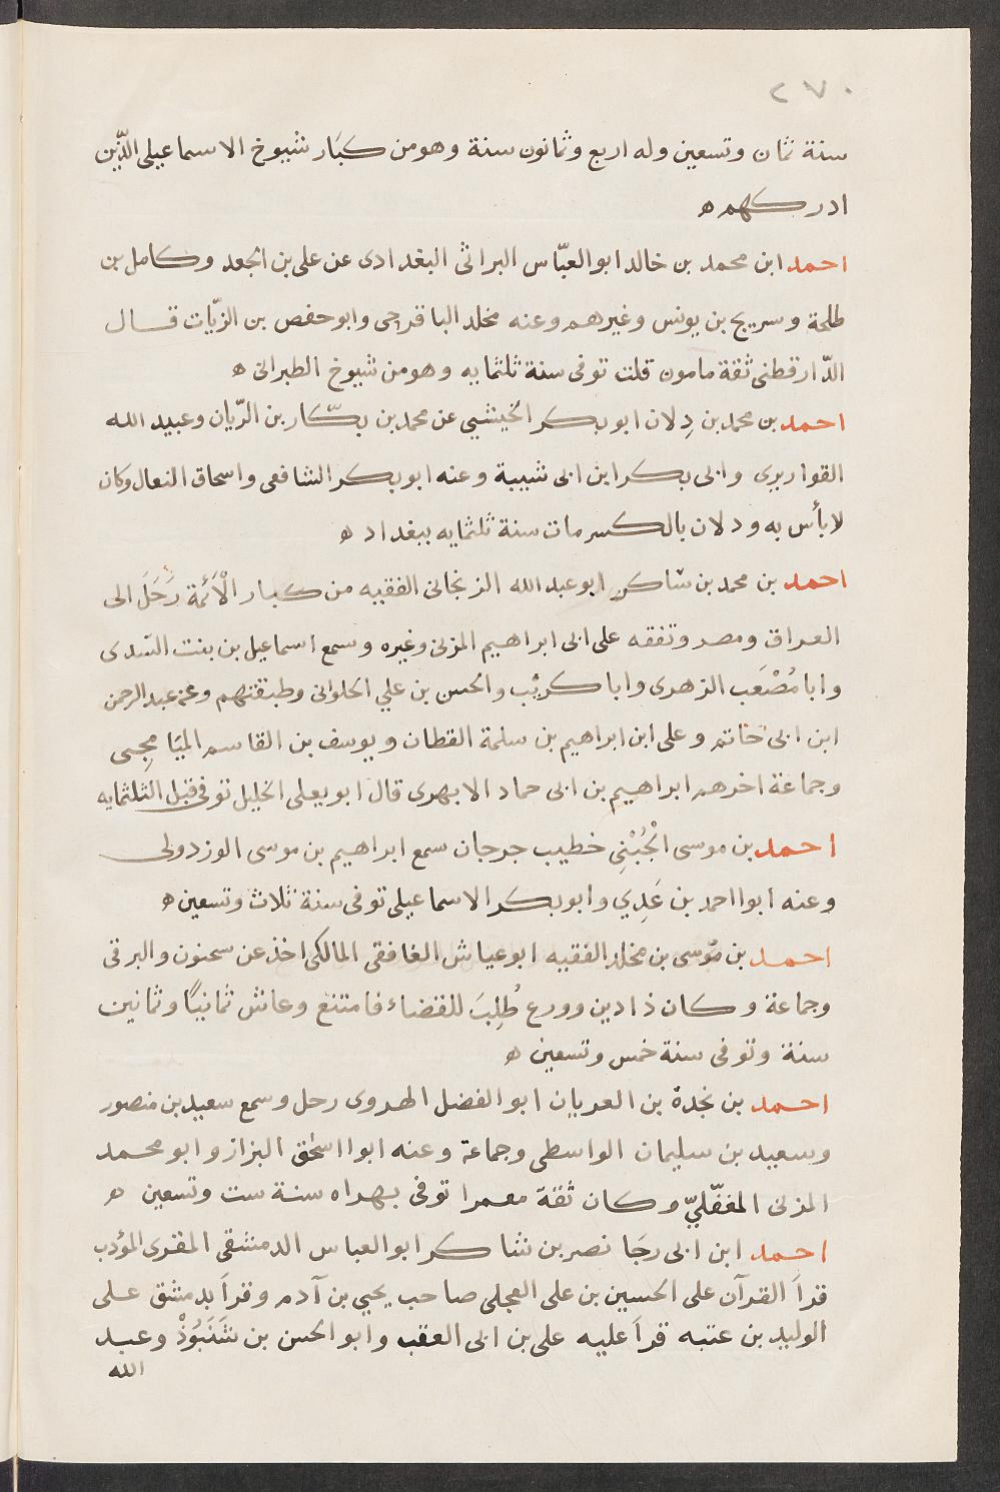 ٢٧٠
سنة ثمان وتسعين وله اربع وثمانون سنة وهو من كبَار شيوخ الاسماعيلى الذّين
ادركهم ه
احمد ابن محمد بن خالد ابو العبّاس البراثى البغدادى عن على بن الجعد وكامل بن
طلحة وسريج بن يونس وغيرهم وعنه مخلد الباقرحى وابو حفص بن الزّيّات قال
الدّارقطنى ثقة مامون قلت توفى سنة ثلثمايه وهو من شيوخ الطبرانى ه
احمد بن محمد بن دِلان ابو بكر الخيشيى عن محمد بن بكّار بن الرّيان وعبيد الله
القواريرى وابى بكر ابن ابى شيبة وعنه ابو بكر الشافعى واسحاق النعال وكان
لا بأس به ودلان بالكسر مات سنة ثلثمايه ببغداد ه
احمد بن محمد بن شاكر ابو عبد الله الزنجانى الفقيه من كبار الْأَئمة رَحَلَ الى
العراق ومصر وتفقه على ابى ابراهيم المزنى وغيره وسمع اسماعيل بن بنت السّدى
وابا مُصْعَب الزهرى وابا كريب والحسن بن علي الحلوانى وطبقتهم وعنه عبد الرحمن
ابن ابى حاتم وعلى ابن ابراهيم بن سلمة القطان ويوسف بن القاسم الميَامِجى
وجماعة اخرهم ابراهيم بن ابى حماد الابهرى قال ابو يعلى الخليل توفى قبل الثلثمايه
احمد بن موسى الْجُبْنِى خطيب جرجان سمع ابراهيم بن موسى الوزدولى
وعنه ابوا احمد بن عَدِي وابو بكر الاسماعيلى توفى سنة ثلاث وتسعين ه
احمد بن موسى بن مخلد الفقيه ابو عياش الغافقى المالكى اخذ عن سحنون والبرقى
وجماعة وكان ذا دين وورع طُلِبَ للقضاء فامتنع وعاش ثمانيًا وثمانين
سنة وتوفى سنة خمس وتسعين ه
احمد بن نجدة بن العريان ابو الفضل الهروى رحل وسمع سعيد بن منصور
وسعيد بن سليمان الواسطى وجماعة وعنه ابوا اسحٰق البزاز وابو محمد
المزنى المغفّليّ وكان ثقة معمرا توفى بهراه سنة ست وتسعين ه
احمد ابن ابى رجَا نصر بن شاكر ابو العباس الدمشقى المقرى المؤدب
قرأ القرآن على الحسين بن على العجلى صاحب يحيي بن آدم وقرأ بدمشق على
الوليد بن عتبه قرأ عليه على بن ابى العقب وابو الحسن بن شَنَبُوْذ وعبد
الله